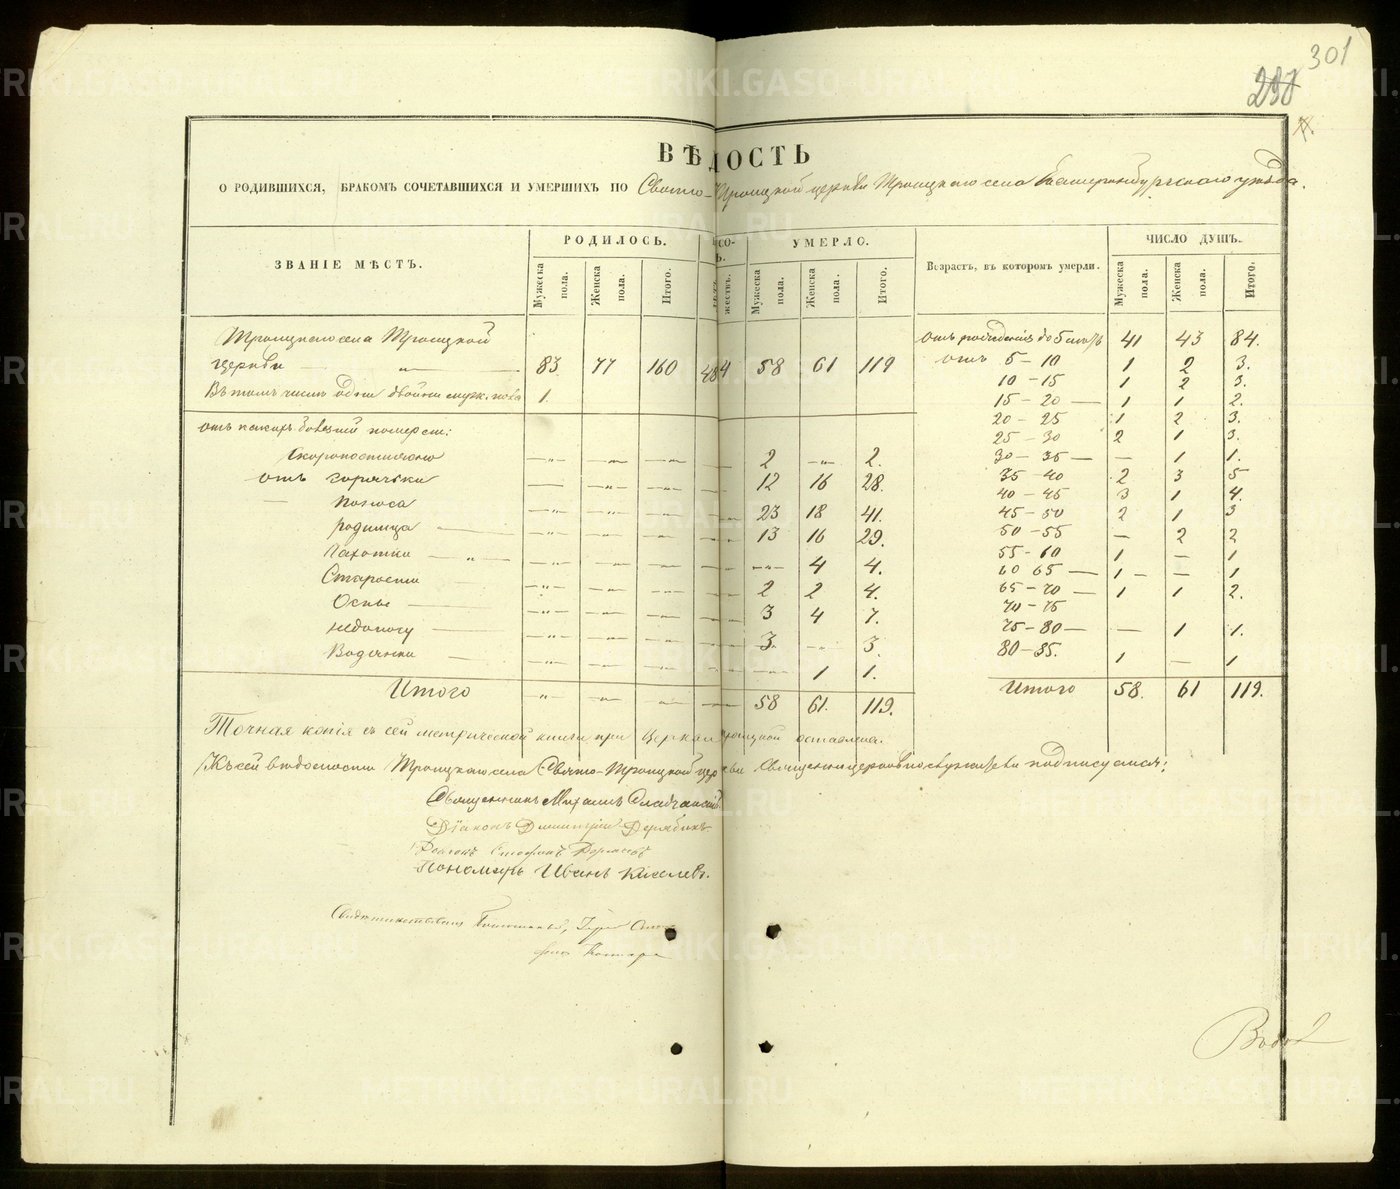 301
ВѢДОСТЬ
О РОДИВШИХСЯ, БРАКОМЪ СОЧЕТАВШИХСЯ И УМЕРШИХЪ ПО Свято-Троицкой церкви Троицкаго села Екатеринбургскаго уѣзда.
ЗВАНІЕ МѢСТЪ. РОДИЛОСЬ. УМЕРЛО. Возрастъ, въ которомъ умерли. ЧИСЛО ДУШЪ.
Мужеска пола. Женска пола. Итого. Мужеска пола. Женска пола. Итого. Мужеска пола. Женска пола. Итого.
Троицкаго села Троицкой отъ рожденія до 5 41 43 84.
церкви 83 77 160 58 61 119 отъ 5-10 1 2 3.
10-15 1 2 3.
Въ томъ числѣ одни двойни муж. пола 1. 15-20 1 1 2.
20-25 1 2 3.
отъ какихъ болѣзней померли: 25-30 2 1 3.
Скоропостижно 2 2. 30-35 — 1 1.
отъ горячки 12 16 28. 35-40 2 3 5
40-45 3 1 4.
Поноса 23 18 41. 45-50 2 1 3
родимца 13 16 29. 50-55 — 2 2
Чахотки 4 4. 55-60 1 — 1
60 65 1 — 1
Старости 2 2 4. 65-70 1 1 2.
Оспы 3 4 7. 70-75
недопогу 3 3. 75-80 — 1 1.
Водянки 1 1. 80-85. 1 — 1
Итого 58 61. 119. Итого 58. 61 119.
Точная копія съ сей метрической книги при церкви Троицкой оставлена.
Къ сей вѣдомости Троицкаго села Свято-Троицкой церкви священноцерковнослужители подписуемся:
Священникъ Михаилъ
Діаконъ Димитрій
Пономарь Иванъ Киселевъ.